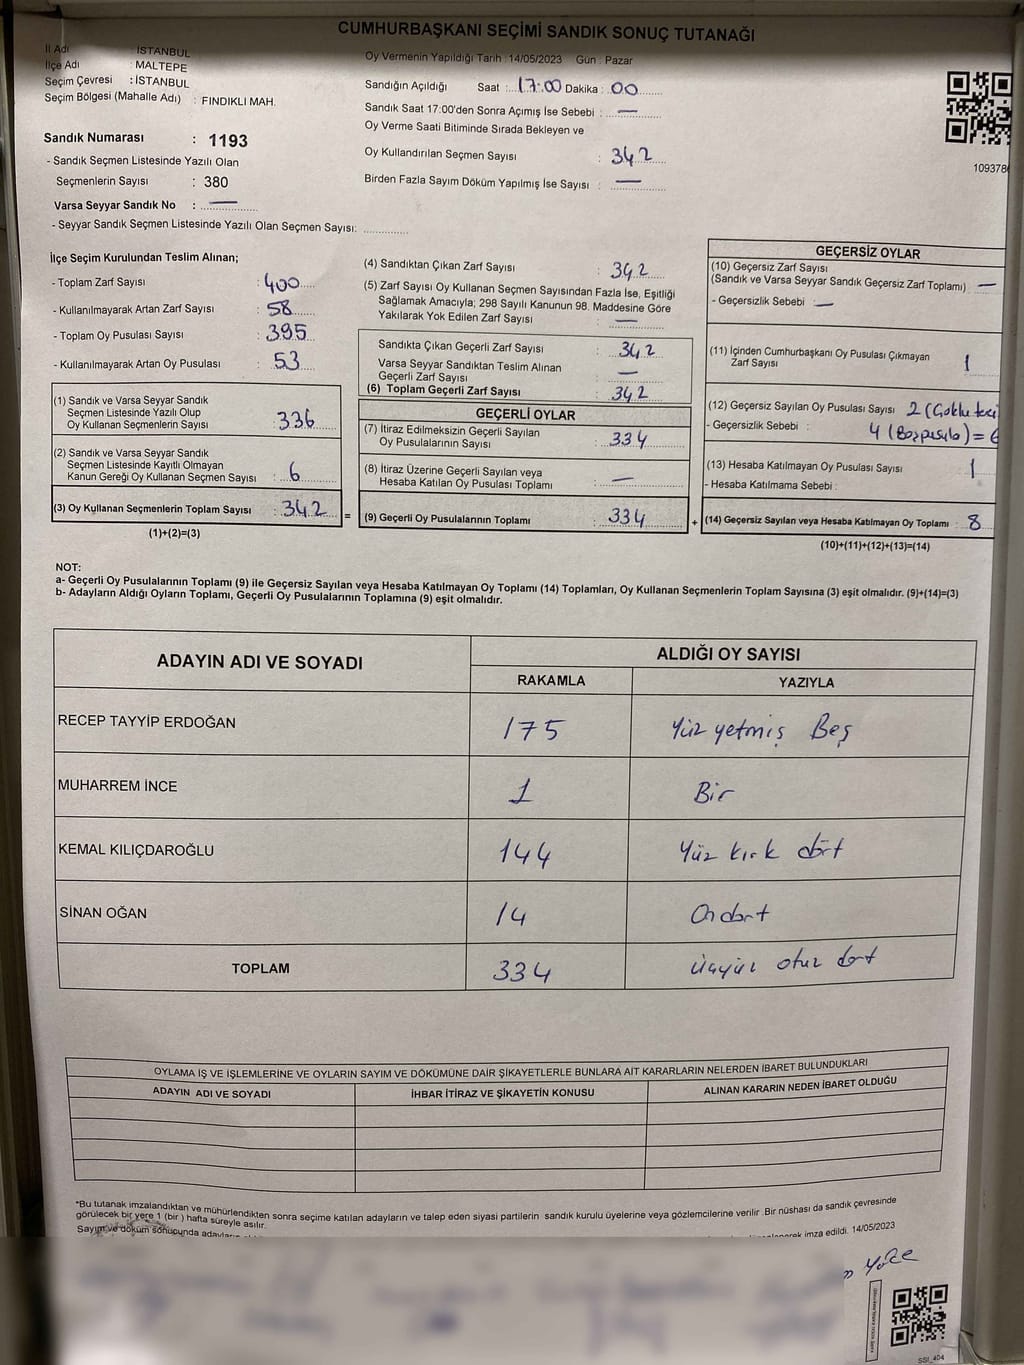 CUMHURBAŞKANI SEÇİMİ SANDIK SONUÇ TUTANAĞI
İl Adı : İSTANBUL
İlçe Adı : MALTEPE
Seçim Çevresi : İSTANBUL
Seçim Bölgesi (Mahalle Adı) : FINDIKLI MAH.
Sandık Numarası : 1193
- Sandık Seçmen Listesinde Yazılı Olan
Seçmenlerin Sayısı : 380
Varsa Seyyar Sandık No : —
- Seyyar Sandık Seçmen Listesinde Yazılı Olan Seçmen Sayısı:
Oy Vermenin Yapıldığı Tarih : 14/05/2023 Gün : Pazar
Sandığın Açıldığı Saat : 17:00 Dakika : 00
Sandık Saat 17:00'den Sonra Açımış İse Sebebi : —
Oy Verme Saati Bitiminde Sırada Bekleyen ve
Oy Kullandırılan Seçmen Sayısı : 342
Birden Fazla Sayım Döküm Yapılmış İse Sayısı : —
109378
İlçe Seçim Kurulundan Teslim Alınan;
- Toplam Zarf Sayısı : 400
- Kullanılmayarak Artan Zarf Sayısı : 58
- Toplam Oy Pusulası Sayısı : 395
- Kullanılmayarak Artan Oy Pusulası : 53
(1) Sandık ve Varsa Seyyar Sandık
Seçmen Listesinde Yazılı Olup
Oy Kullanan Seçmenlerin Sayısı : 336
(2) Sandık ve Varsa Seyyar Sandık
Seçmen Listesinde Kayıtlı Olmayan
Kanun Gereği Oy Kullanan Seçmen Sayısı : 6
(3) Oy Kullanan Seçmenlerin Toplam Sayısı : 342
(1)+(2)=(3)
=
(4) Sandıktan Çıkan Zarf Sayısı : 342
(5) Zarf Sayısı Oy Kullanan Seçmen Sayısından Fazla İse, Eşitliği
Sağlamak Amacıyla; 298 Sayılı Kanunun 98. Maddesine Göre
Yakılarak Yok Edilen Zarf Sayısı : —
Sandıkta Çıkan Geçerli Zarf Sayısı : 342
Varsa Seyyar Sandıktan Teslim Alınan
Geçerli Zarf Sayısı : —
(6) Toplam Geçerli Zarf Sayısı : 342
GEÇERLİ OYLAR
(7) İtiraz Edilmeksizin Geçerli Sayılan
Oy Pusulalarının Sayısı : 334
(8) İtiraz Üzerine Geçerli Sayılan veya
Hesaba Katılan Oy Pusulası Toplamı : —
(9) Geçerli Oy Pusulalarının Toplamı : 334
+
GEÇERSİZ OYLAR
(10) Geçersiz Zarf Sayısı
(Sandık ve Varsa Seyyar Sandık Geçersiz Zarf Toplamı) —
- Geçersizlik Sebebi : —
(11) İçinden Cumhurbaşkanı Oy Pusulası Çıkmayan
Zarf Sayısı 1
(12) Geçersiz Sayılan Oy Pusulası Sayısı 2
- Geçersizlik Sebebi : 4 = 6
(13) Hesaba Katılmayan Oy Pusulası Sayısı 1
- Hesaba Katılmama Sebebi :
(14) Geçersiz Sayılan veya Hesaba Katılmayan Oy Toplamı : 8
(10)+(11)+(12)+(13)=(14)
NOT:
a- Geçerli Oy Pusulalarının Toplamı (9) ile Geçersiz Sayılan veya Hesaba Katılmayan Oy Toplamı (14) Toplamları, Oy Kullanan Seçmenlerin Toplam Sayısına (3) eşit olmalıdır. (9)+(14)=(3)
b- Adayların Aldığı Oyların Toplamı, Geçerli Oy Pusulalarının Toplamına (9) eşit olmalıdır.
ADAYIN ADI VE SOYADI ALDIĞI OY SAYISI
RAKAMLA YAZIYLA
RECEP TAYYİP ERDOĞAN 175 Yüz yetmiş Beş
MUHARREM İNCE 1 Bir
KEMAL KILIÇDAROĞLU 144 Yüz kırk dört
SİNAN OĞAN 14 Ondört
TOPLAM 334 üçyüz otuz dört
OYLAMA İŞ VE İŞLEMLERİNE VE OYLARIN SAYIM VE DÖKÜMÜNE DAİR ŞİKAYETLERLE BUNLARA AİT KARARLARIN NELERDEN İBARET BULUNDUKLARI
ADAYIN ADI VE SOYADI İHBAR İTİRAZ VE ŞİKAYETİN KONUSU ALINAN KARARIN NEDEN İBARET OLDUĞU
*Bu tutanak imzalandıktan ve mühürlendikten sonra seçime katılan adayların ve talep eden siyasi partilerin sandık kurulu üyelerine veya gözlemcilerine verilir. Bir nüshası da sandık çevresinde
görülecek bir yere 1 (bir) hafta süreyle asılır.
Sayım ve döküm sonucunda imza edildi. 14/05/2023
SSI_404